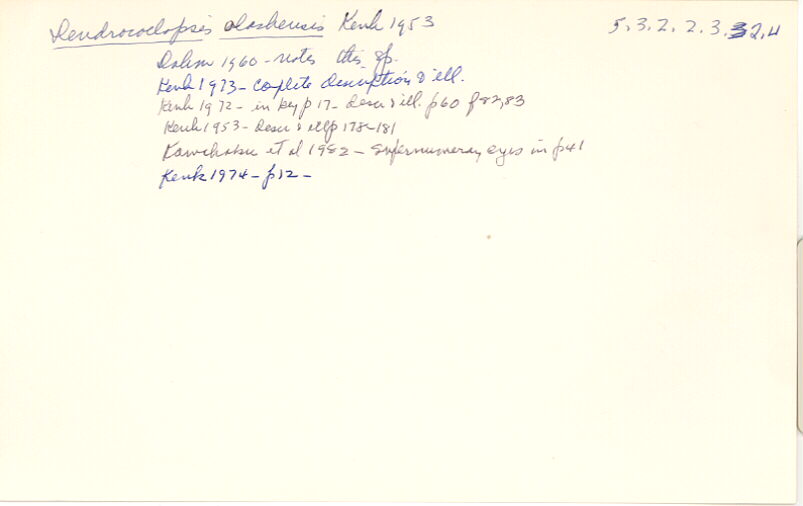 Dendrocoelopsis alaskensis Kenk 1953 5.3.2.2.3.32.4
Dahm 1960 - notes this sp.
Kenk 1973 - coplete description & ill.
Kenk 1972 - in key p 17 - descr & ill. p60 f 82,83
Kenk 1953 - descr & ill p 178-181
Kawakatsu et al 1982 - supernumeray eyes in p41
Kenk 1974 - p12 -